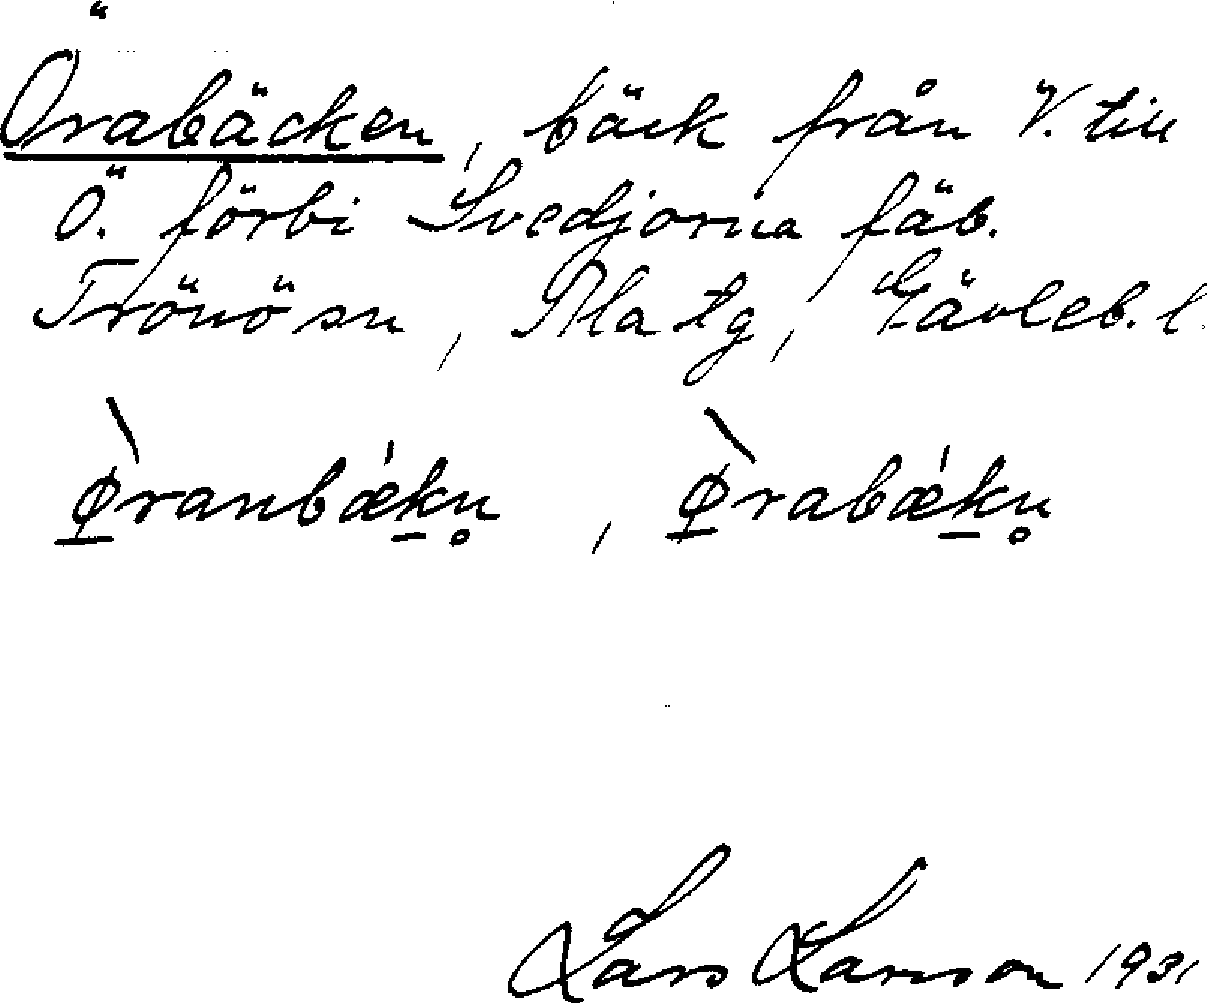 Örabäcken, bäck från V. till
Ö. förbi Svedjorna fäb.
Trönö sn, Matg, Gävleb. l.
ø̀ranbǽkn̥, ø̀rabǽkn̥
Lars Larsson 1931